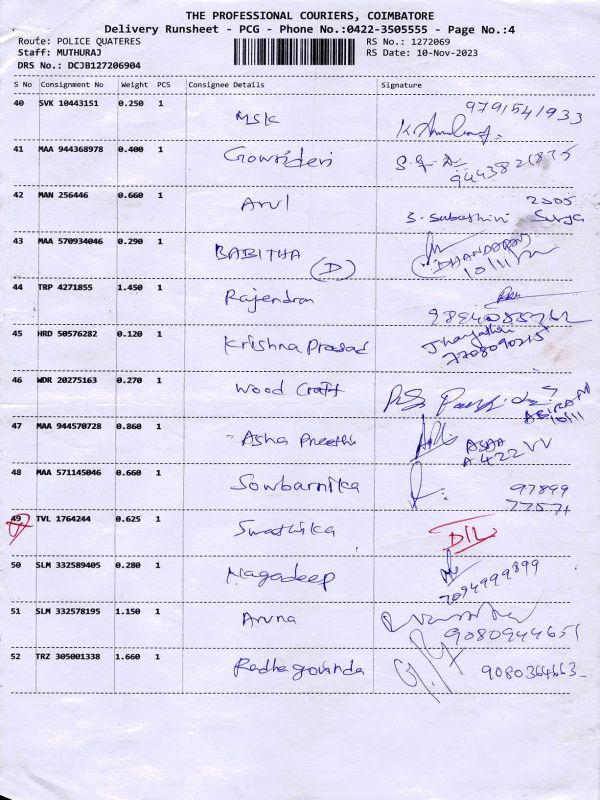 THE PROFESSIONAL COURIERS, COIMBATORE
Delivery Runsheet - PCG - Phone No.:0422-3505555 - Page No.:4
Route: POLICE QUATERES RS No.: 1272069
Staff: MUTHURAJ RS Date: 10-Nov-2023
DRS No.: DCJB127206904
S No Consignment No Weight PCS Consignee Details Signature
40 SVK 10443151 0.250 1 MSK 9791541933
41 MAA 944368978 0.400 1 Gowrideri
42 MAN 256446 0.660 1 Arul S. Subashini Surya
43 MAA 570934046 0.290 1 BABITHA (D) 10/11/
44 TRP 4271855 1.450 1 Rajendran
45 HRD 50576282 0.120 1 Krishna Prasad 7708090215
46 WDR 20275163 0.270 1 Wood Craft 10/11
47 MAA 944570728 0.860 1 Asha Preethi A 422 VV
48 MAA 571145046 0.660 1 Sowbarnika 97899
49 TVL 1764244 0.625 1 Swathika D/L
50 SLM 332589405 0.280 1 Nagadeep 7094999899
51 SLM 332578195 1.150 1 Aruna 9080944651
52 TRZ 305001338 1.660 1 Radhagovinda 9080364663